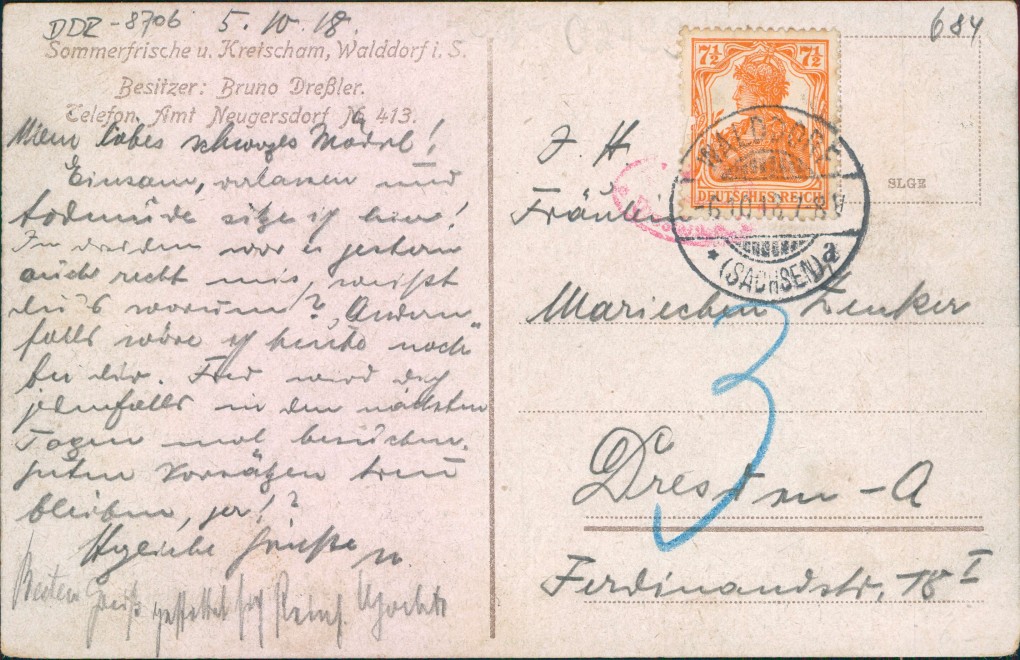 DDR-8706 5.10.18.
Sommerfrische u. Kretscham, Walddorf i. S.
Besitzer: Bruno Dreßler.
Telefon, Amt Neugersdorf № 413.
Mein liebes schwarzes Mädel!
Einsam, verlassen und
todmüde sitze ich hier!
In war es gestern
auch recht mies, weißt
du's warum? Andern
falls wäre ich heute noch
bei dir. Fred wird dich
jedenfalls in den nächsten
Tagen mal besuchen.
Guten Vorsätzen treu
bleiben, ja!?
Herzliche Grüße
Besten Gruß gestattet sich
684
7½ 7½
DEUTSCHES REICH
WALDDORF
6.10.18.7-8V
* (SACHSEN) a
SLGE
J. H.
Fräulein
Mariechen Zenker
3
Dresden-A
Ferdinandstr, 18 I